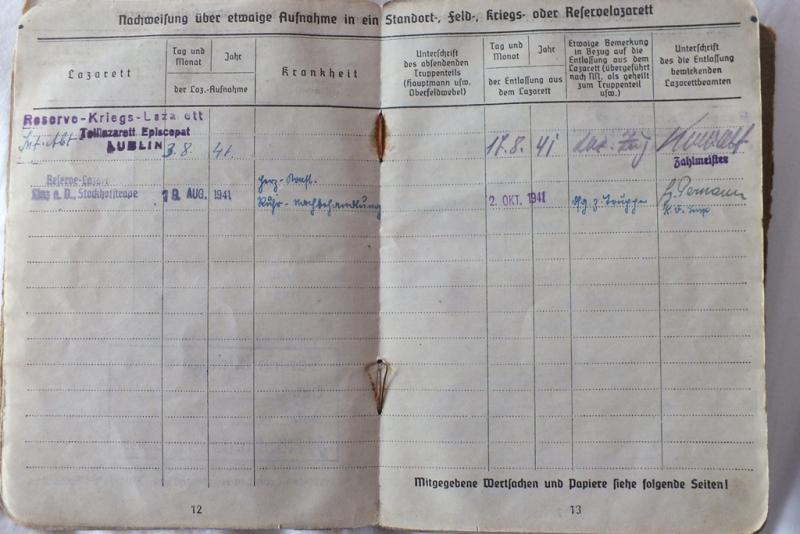 Nachweisung über etwaige Aufnahme in ein Standort-, Feld-, Kriegs- oder Reservelazarett
Lazarett
Tag und Monat
Jahr
der Laz.-Aufnahme
Krankheit
Unterschrift
des absendenden
Truppenteils
(Hauptmann usw.
Oberfeldwebel)
Tag und Monat
Jahr
der Entlassung aus
dem Lazarett
Etwaige Bemerkung
in Bezug auf die
Entlassung aus dem
Lazarett (übergeführt
nach NN, als geheilt
zum Truppenteil
usw.)
Unterschrift
des die Entlassung
bewirkenden
Lazarettbeamten
Reserve-Kriegs-Lazarett
Teillazarett Episcopat
LUBLIN
3.8. 41.
17.8. 41
Zahlmeister
Reserve-Lazarett
Linz a. D., Stockhofstraße
18. AUG. 1941
Ruhr-Nachbehandlung
2. OKT. 1941
z. Truppe
12
Mitgegebene Wertsachen und Papiere siehe folgende Seiten!
13